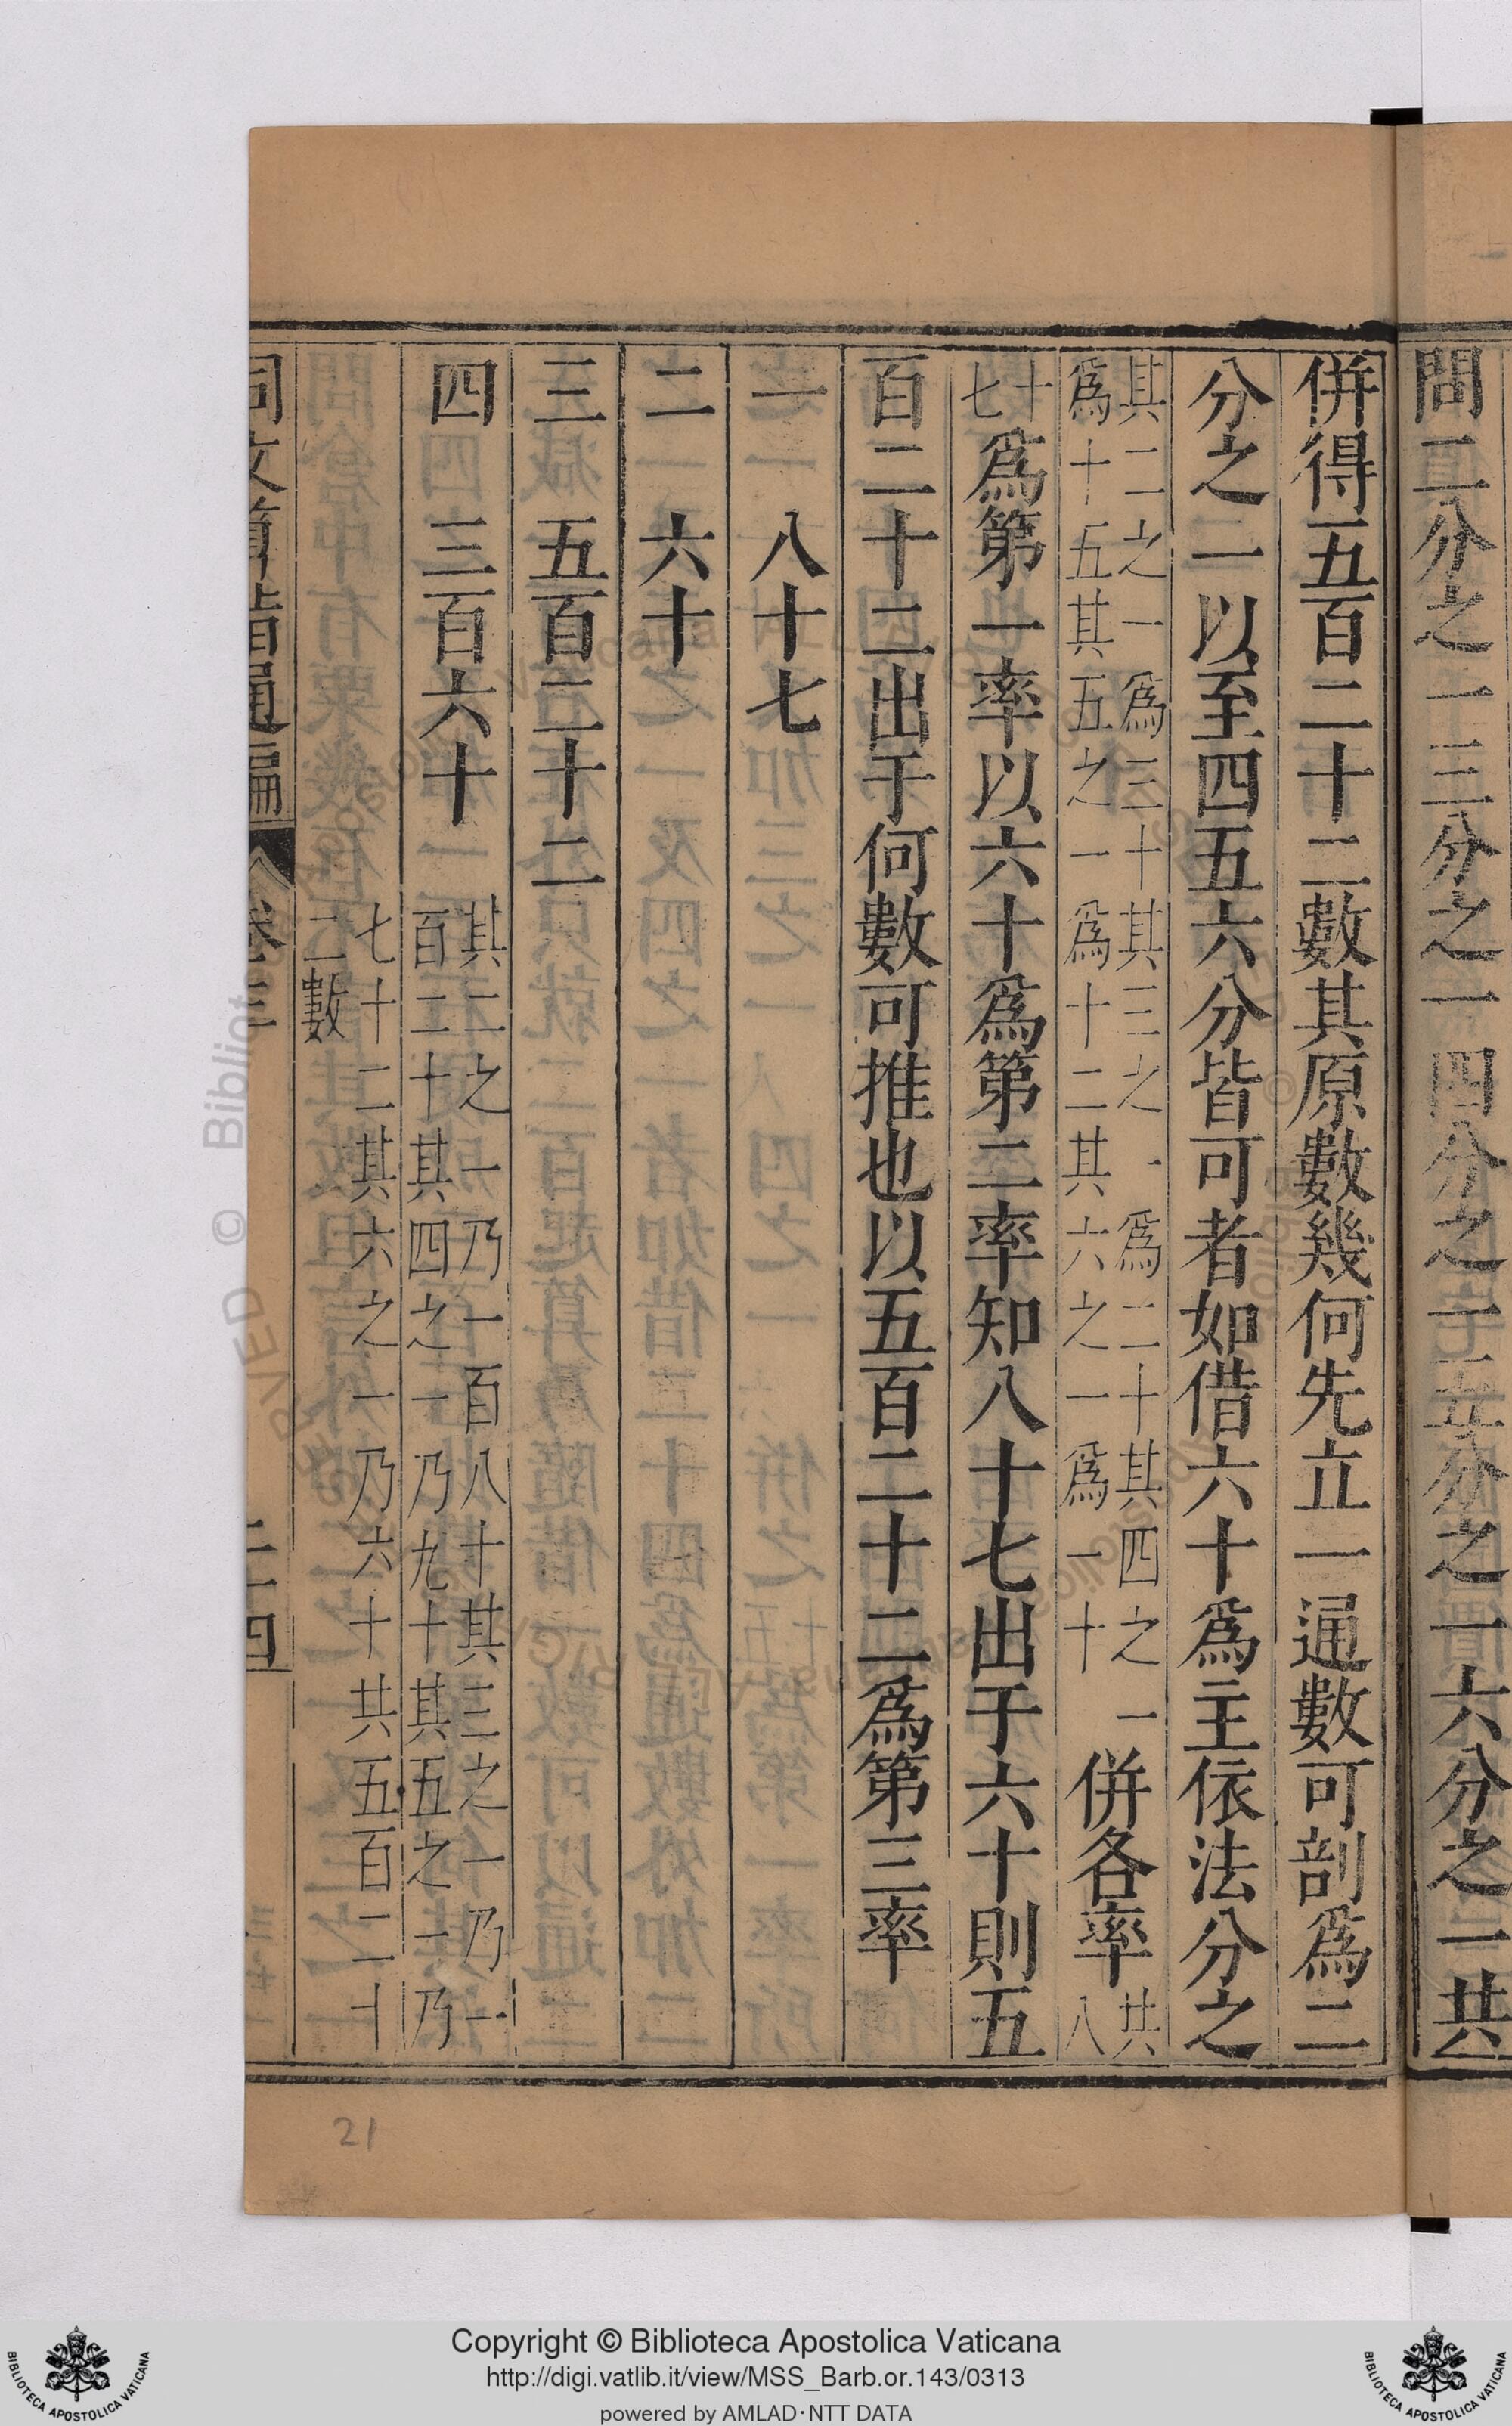 問二分之一三分之一四分之一五分之一六分之一共
併得五百二十二數其原數幾何先立一通數可剖爲二
分之一以至四五六分皆可者如借六十爲主依法分之
其二之一爲三十其三之一爲二十其四之一
爲十五其五之一爲十二其六之一爲一十
併各率
共八
十七
爲第一率以六十爲第二率知八十七出于六十則五
百二十二出于何數可推也以五百二十二爲第三率
一 八十七
二 六十
三 五百二十二
四 三百六十
其二之一乃一百八十其三之一乃一
百二十其四之一乃九十其五之一乃
七十二其六之一乃六十共五百二十
二數
同文算指通編 卷三 二十四
21
© Biblioteca
Copyright © Biblioteca Apostolica Vaticana
http://digi.vatlib.it/view/MSS_Barb.or.143/0313
powered by AMLAD·NTT DATA
BIBLIOTECA APOSTOLICA VATICANA
BIBLIOTECA APOSTOLICA VATICANA